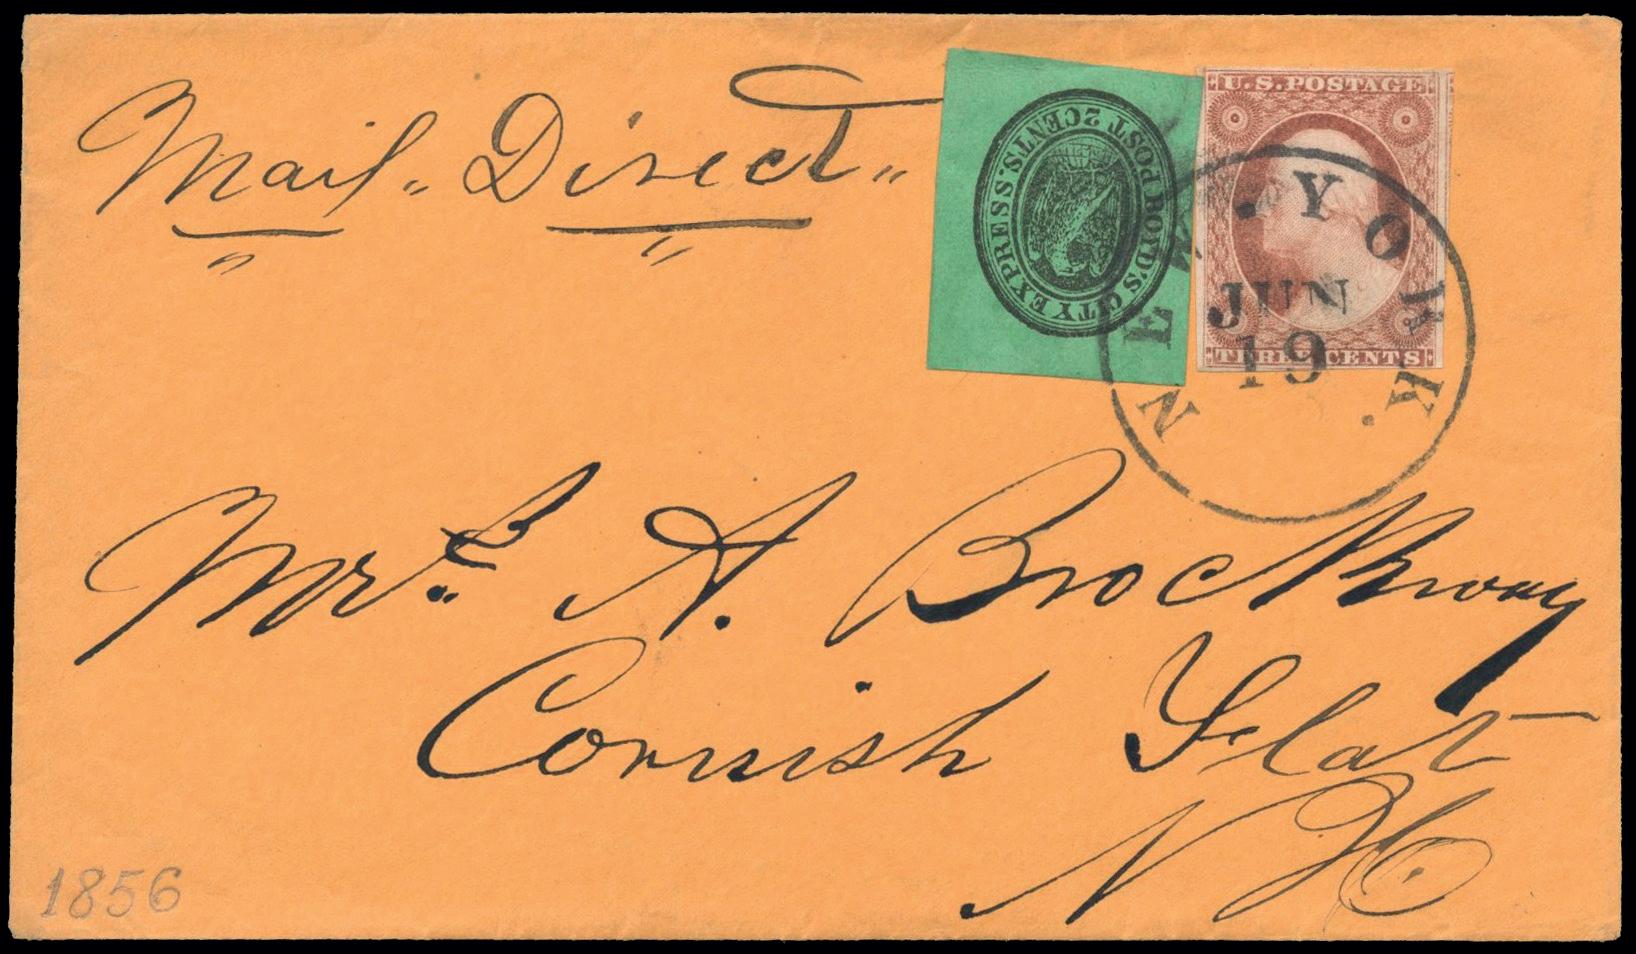 Mail Direct
BOYD'S CITY EXPRESS. POST 2CENTS.
U.S. POSTAGE
THREE CENTS
NEW YORK
JUN
19
Mrs. A. Brockway
Cornish Flat
N H
1856